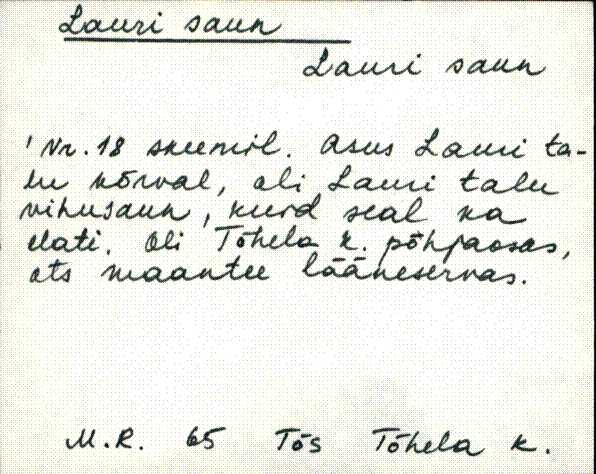 Lauri saun
Lauri saun
' Nr. 18 skeemil. Asus Lauri ta-
lu kõrval, oli Lauri talu
vihusaun, kuid seal ka
elati. Oli Tõhela k. põhjaosas,
ots maantee lääneservas.
M.R. 65 Tõs Tõhela k.